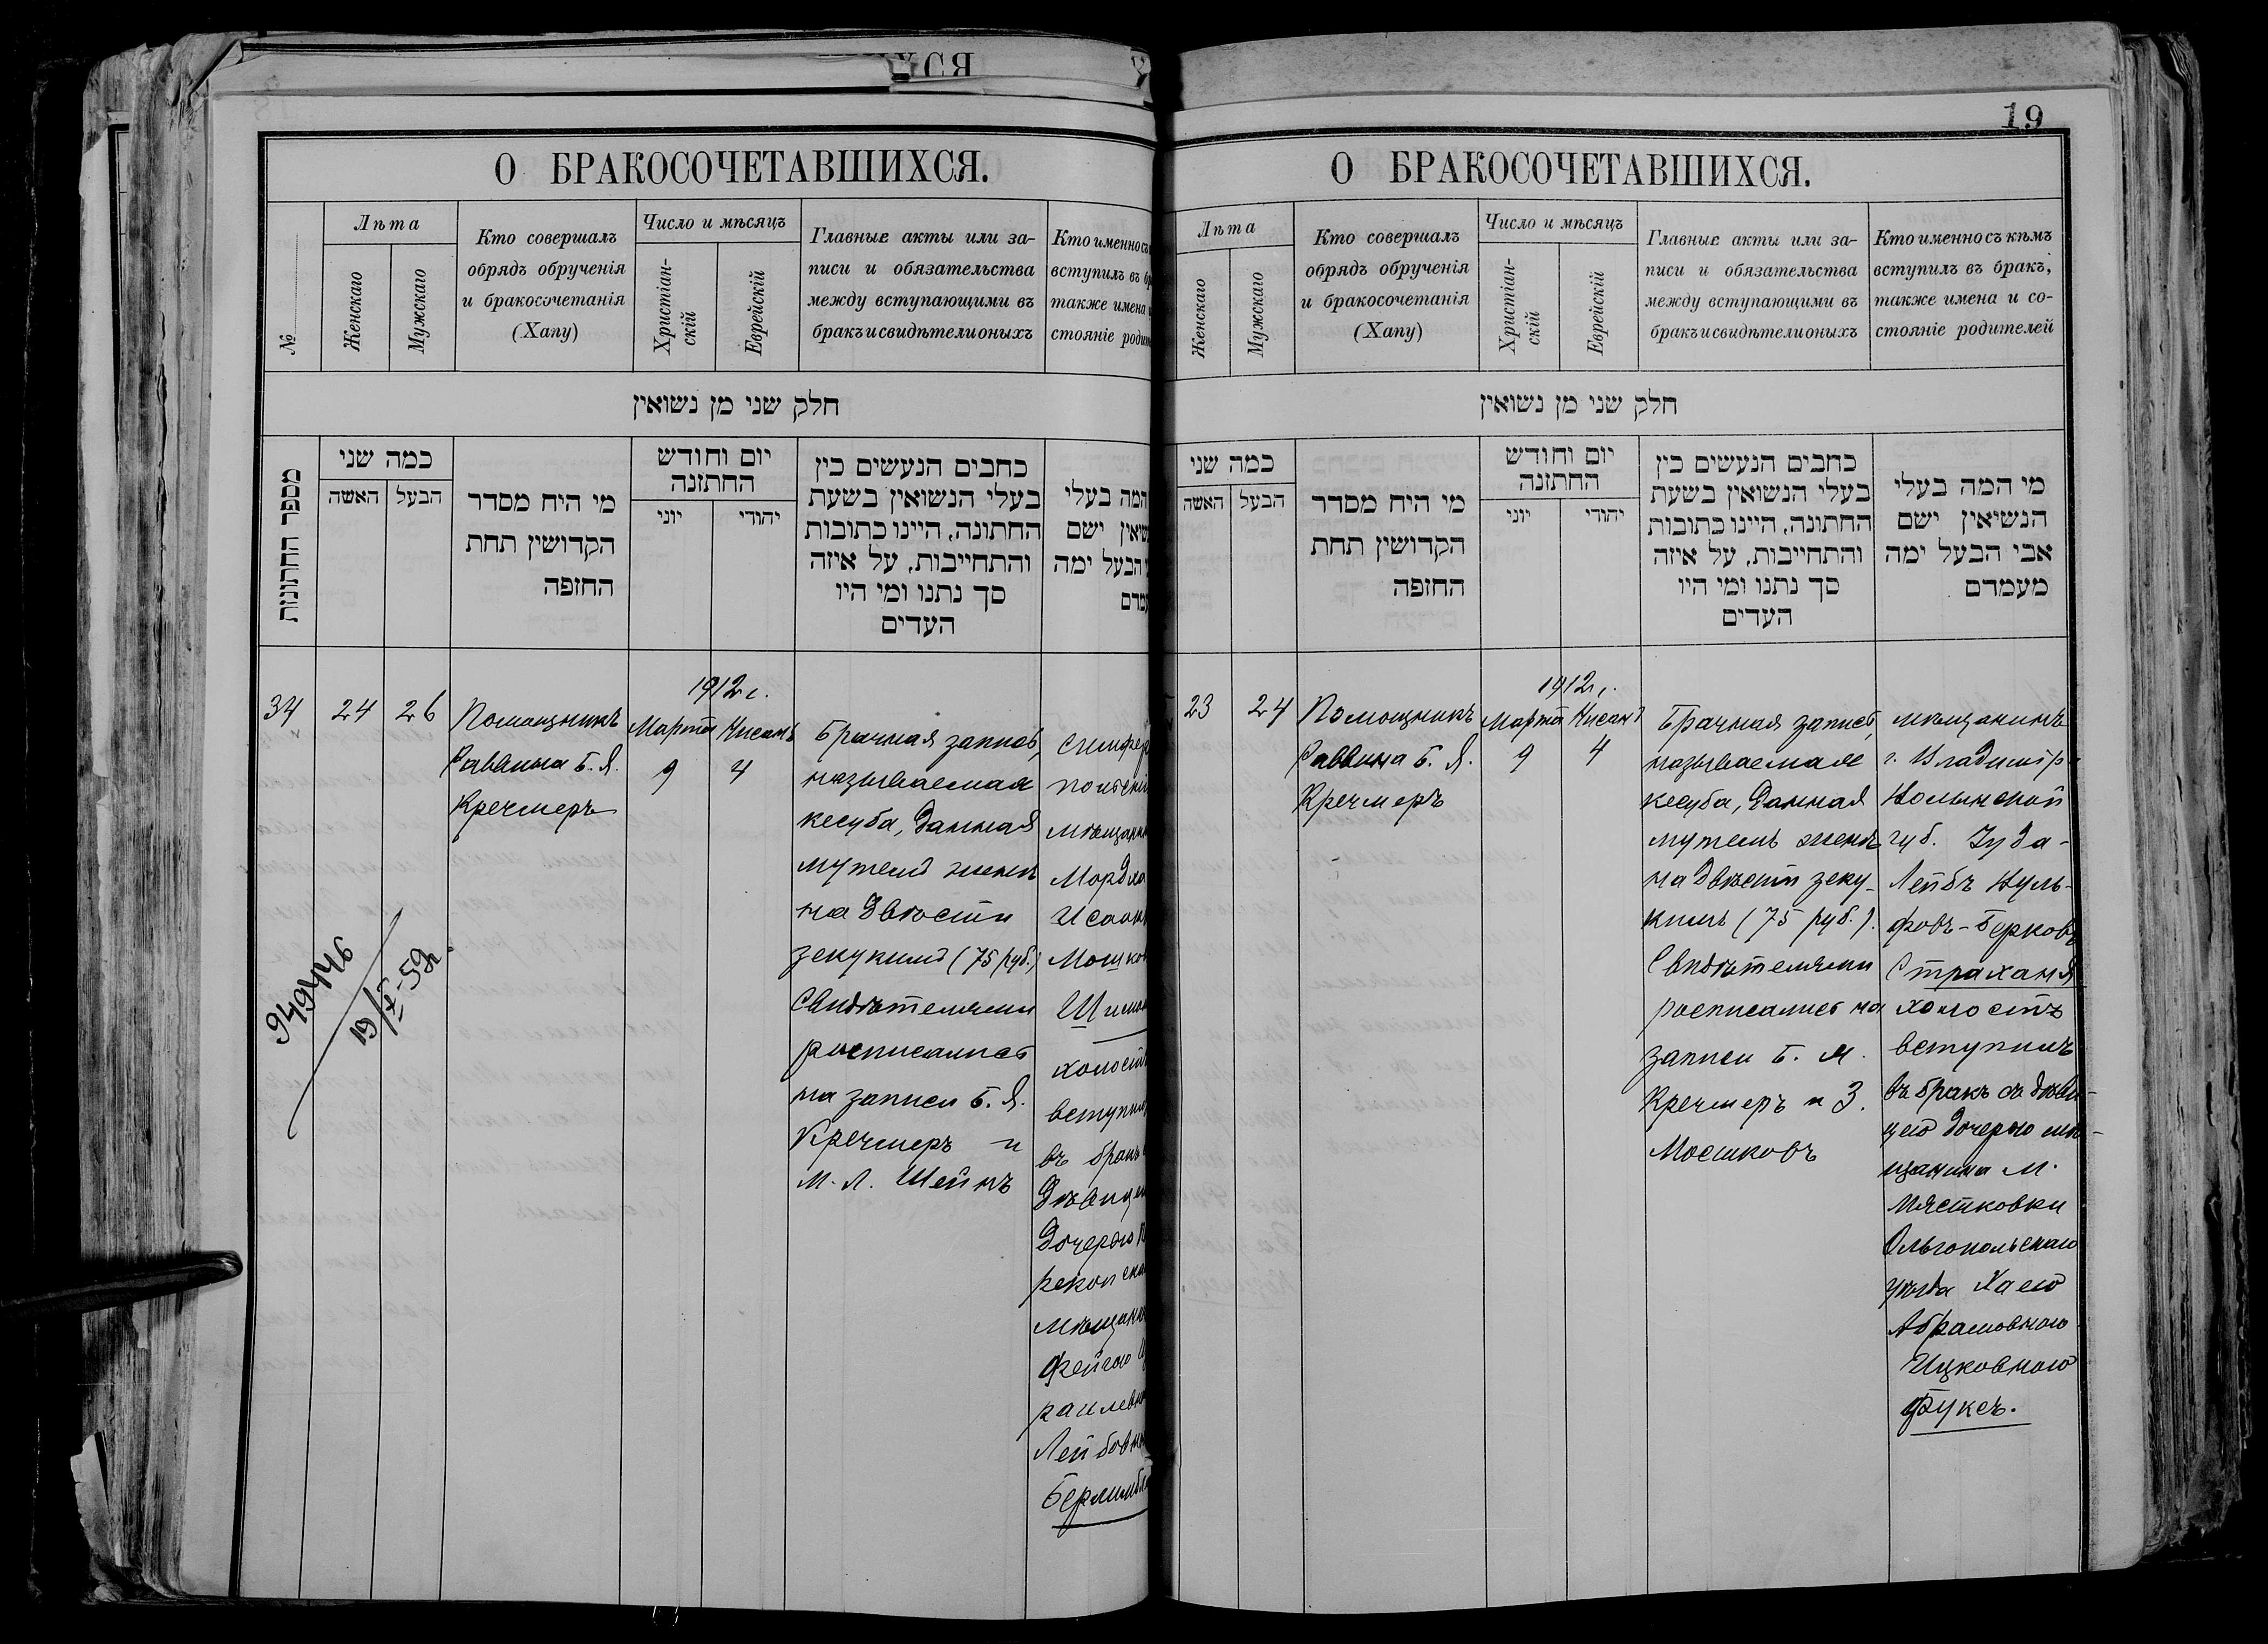 19
О БРАКОСОЧЕТАВШИХСЯ.
№
Лѣта
Женскаго
Мужскаго
Кто совершалъ
обрядъ обрученія
и бракосочетанія
(Хапу)
Число и мѣсяцъ
Христіан-
скій
Еврейскій
Главные акты или за-
писи и обязательства
между вступающими въ
бракъ и свидѣтели оныхъ
Кто именно съ
вступилъ въ
также имена
стояніе
חלק שני מן נשואין
מספר החתונות
כמה שני
האשה
הבעל
מי היח מסדר
הקדושין תחת
החזפה
יום וחודש
החתזנה
יוני
יהודי
כחבים הנעשים כין
בעלי הנשואין בשעת
החתונה, היינו כתובות
והתחייבות, על איזה
סך נתנו ומי היו
העדים
המה בעלי
ישם
הבעל ימה
34
24
26
Помощникъ
Раввина Б. Я.
Кречмеръ
1912 г.
Марта Нисанъ
9 4
Брачная запись,
называемая
кесуба, данная
мужемъ женѣ
на двѣсти
зекукимъ (75 руб.)
Свидѣтелями
росписались
на записи Б. Я.
Кречмеръ и
М. Л. Шейнъ
холостъ
въ бракъ
949446
19/X-59г.
О БРАКОСОЧЕТАВШИХСЯ.
Лѣта
Женскаго
Мужскаго
Кто совершалъ
обрядъ обрученія
и бракосочетанія
(Хапу)
Число и мѣсяцъ
Христіан-
скій
Еврейскій
Главные акты или за-
писи и обязательства
между вступающими въ
бракъ и свидѣтели оныхъ
Кто именно съ кѣмъ
вступилъ въ бракъ,
также имена и со-
стояніе родителей
חלק שני מן נשואין
כמה שני
האשה
הבעל
מי היח מסדר
הקדושין תחת
החזפה
יום וחודש
החתזנה
יוני
יהודי
כחבים הנעשים כין
בעלי הנשואין בשעת
החתונה, היינו כתובות
והתחייבות, על איזה
סך נתנו ומי היו
העדים
מי המה בעלי
הנשיאין ישם
אבי הבעל ימה
מעמדם
23
24
Помощникъ
Раввина Б. Я.
Кречмеръ
1912 г.
Марта Нисанъ
9 4
Брачная запись,
называемая
кесуба, данная
мужемъ женѣ
на двѣсти зеку-
кимъ (75 руб.).
Свидѣтелями
росписались на
записи Б. Я.
Кречмеръ и З.
Мошковъ
мѣщанинъ
г. Владимір-
Волынской
губ. Іуда-
Лейбъ Вуль-
фовъ-Берковъ
Страханъ
холостъ
вступилъ
въ бракъ съ дѣви-
цею дочерью мѣ-
щанина м.
Мястковки
Ольгопольскаго
уѣзда Хаею
Абрамовною
Ицковною
Фуксъ.